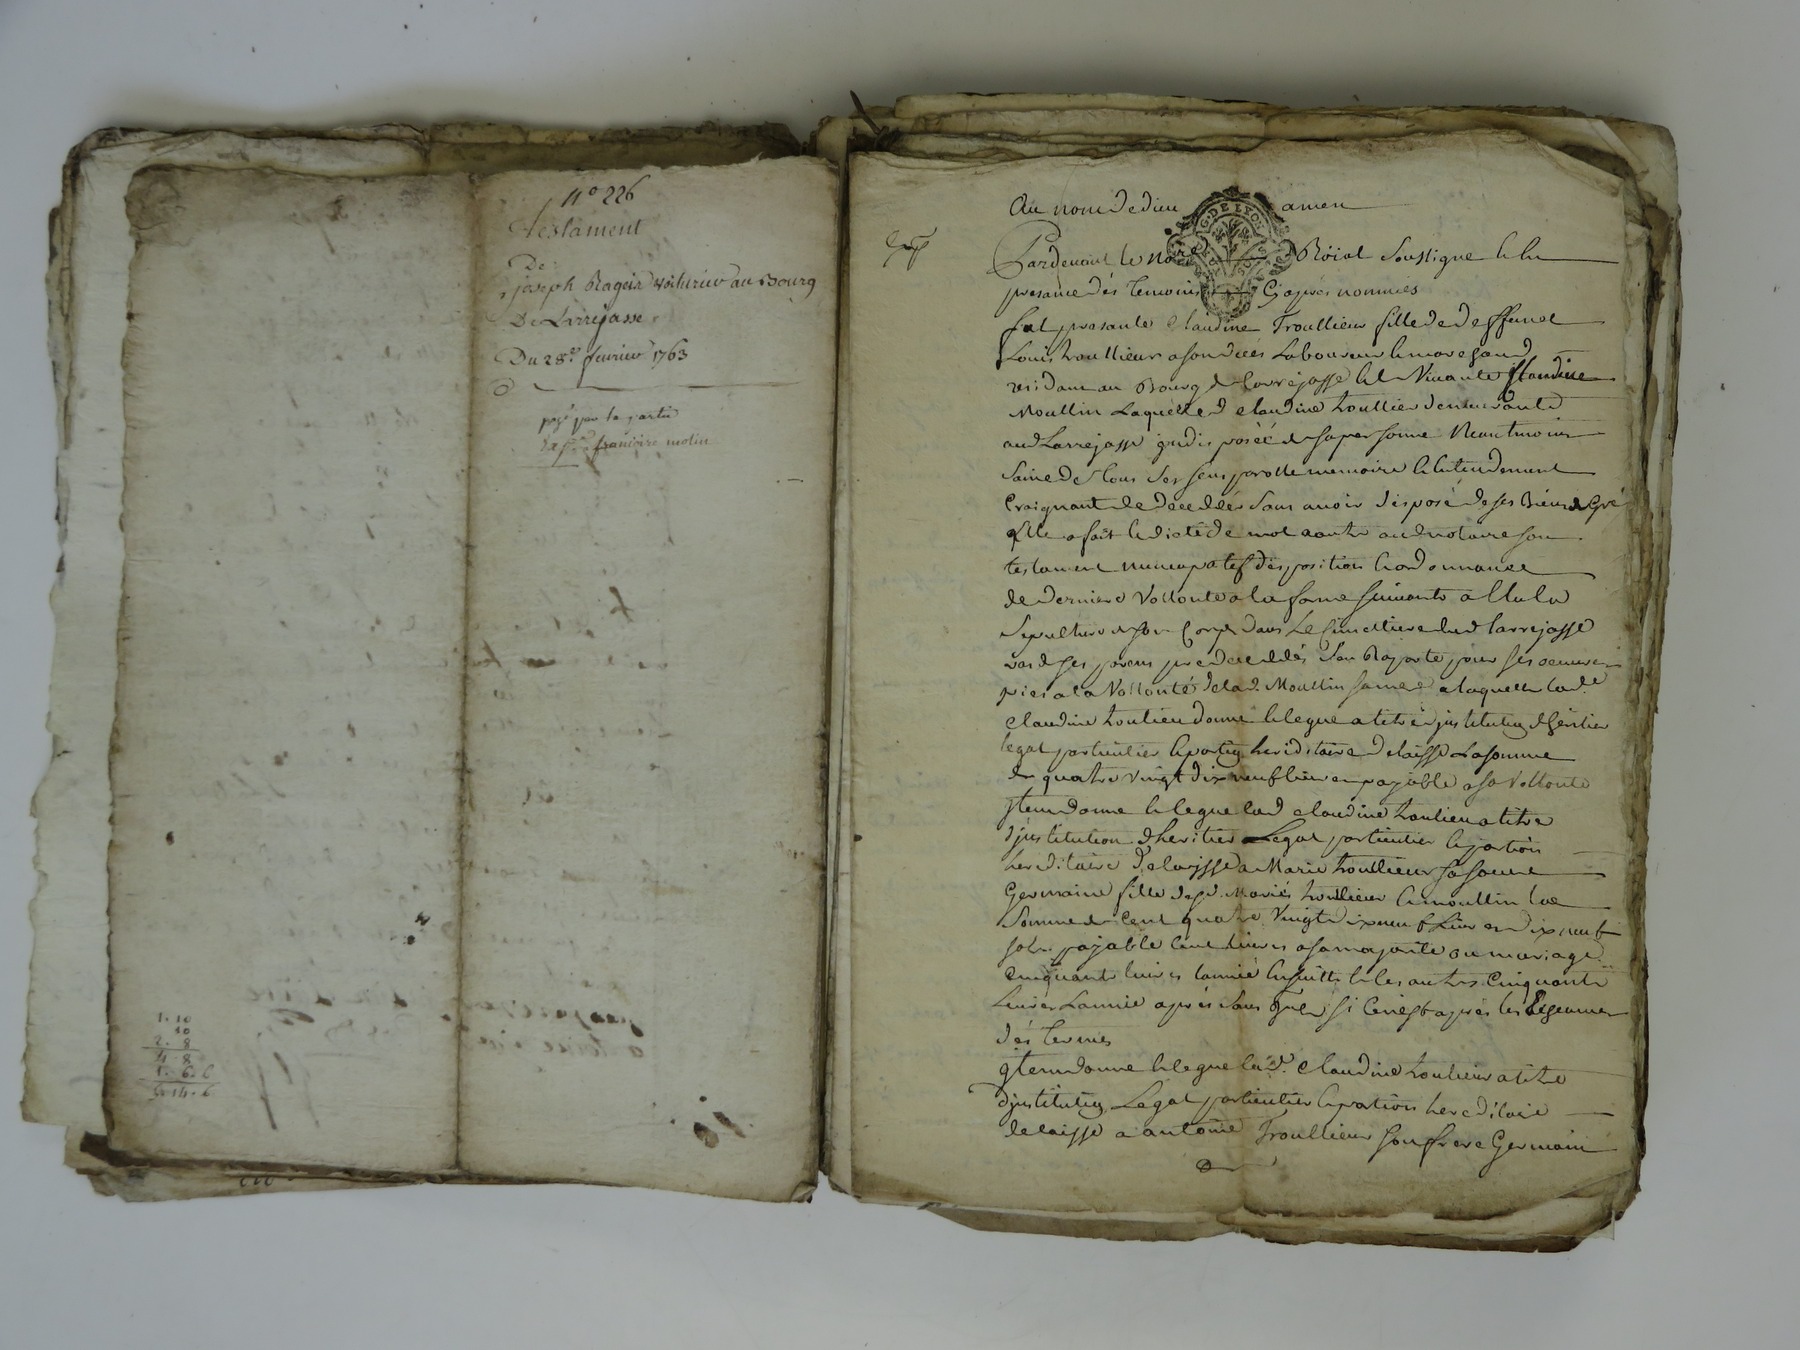 n° 226
Testament
De
joseph Rageir voiturier au Bourg
De Larrejasse
Du 28e fevrier 1763
payé par la partie
françoise molin
1. 10
10
2. 8
4. 8
1. 6. 6
5. 14. 6
Au nom de dieu amen
G. DE LYON
Pardevant le Nore Roial Soussigne & en
presance dés temoins Cy après nommés
fut presante Claudine Troullieur fille de deffunct
Louis troullieur a son decés Laboureur & marchand
residant au Bourg de Larrejasse & de Vivante Claudine
Moullin Laquelle d claudine troullier demeurante
aud Larrejasse indisposée de sa personne Neantmoins
saine de tous ses sens parolle memoire & entendement
Craignant de décedder sans avoir disposé de ses Biens de Gré
Elle a fait & dicté de mot a autre aud notaire son
testament nuncupatif disposition & ordonnance
de derniere Vollonté a la forme suivante a Elu la
sepulture de son Corps dans Le Cimettiere dud larrejasse
de ses parens predeceddés San Raporte pour ses oeuvres
pies a la Vollonté de lad. Moullin sa mere a laquelle lad.e
claudine troulieur donne & legue a titre d'justitution d'heritier
legat particulier & portion hereditaire delaisse La somme
de quatre vingt dix neuf livres payable a sa Vollonté
jtem donne & legue lad claudine troulieur a titre
d'justitution d'heritier Legat particulier & portion
hereditaire delaisse a Marie troullieur sa soeur
Germaine fille desd. Mariés troullieur & moullin la
Somme de Cent quatre Vingt dix neuf Livres dix neuf
sols payable Cent livres a sa majorité ou mariage
Cinquante livres l'année En suitte & les autres Cinquante
livres L'année après sans si Ce n'est après les
dés termes
jtem donne & legue lad. Claudine troulieur a titre
d'justitution Legat particulier & portion hereditaire
delaisse a antoine Troullieur son frere Germain